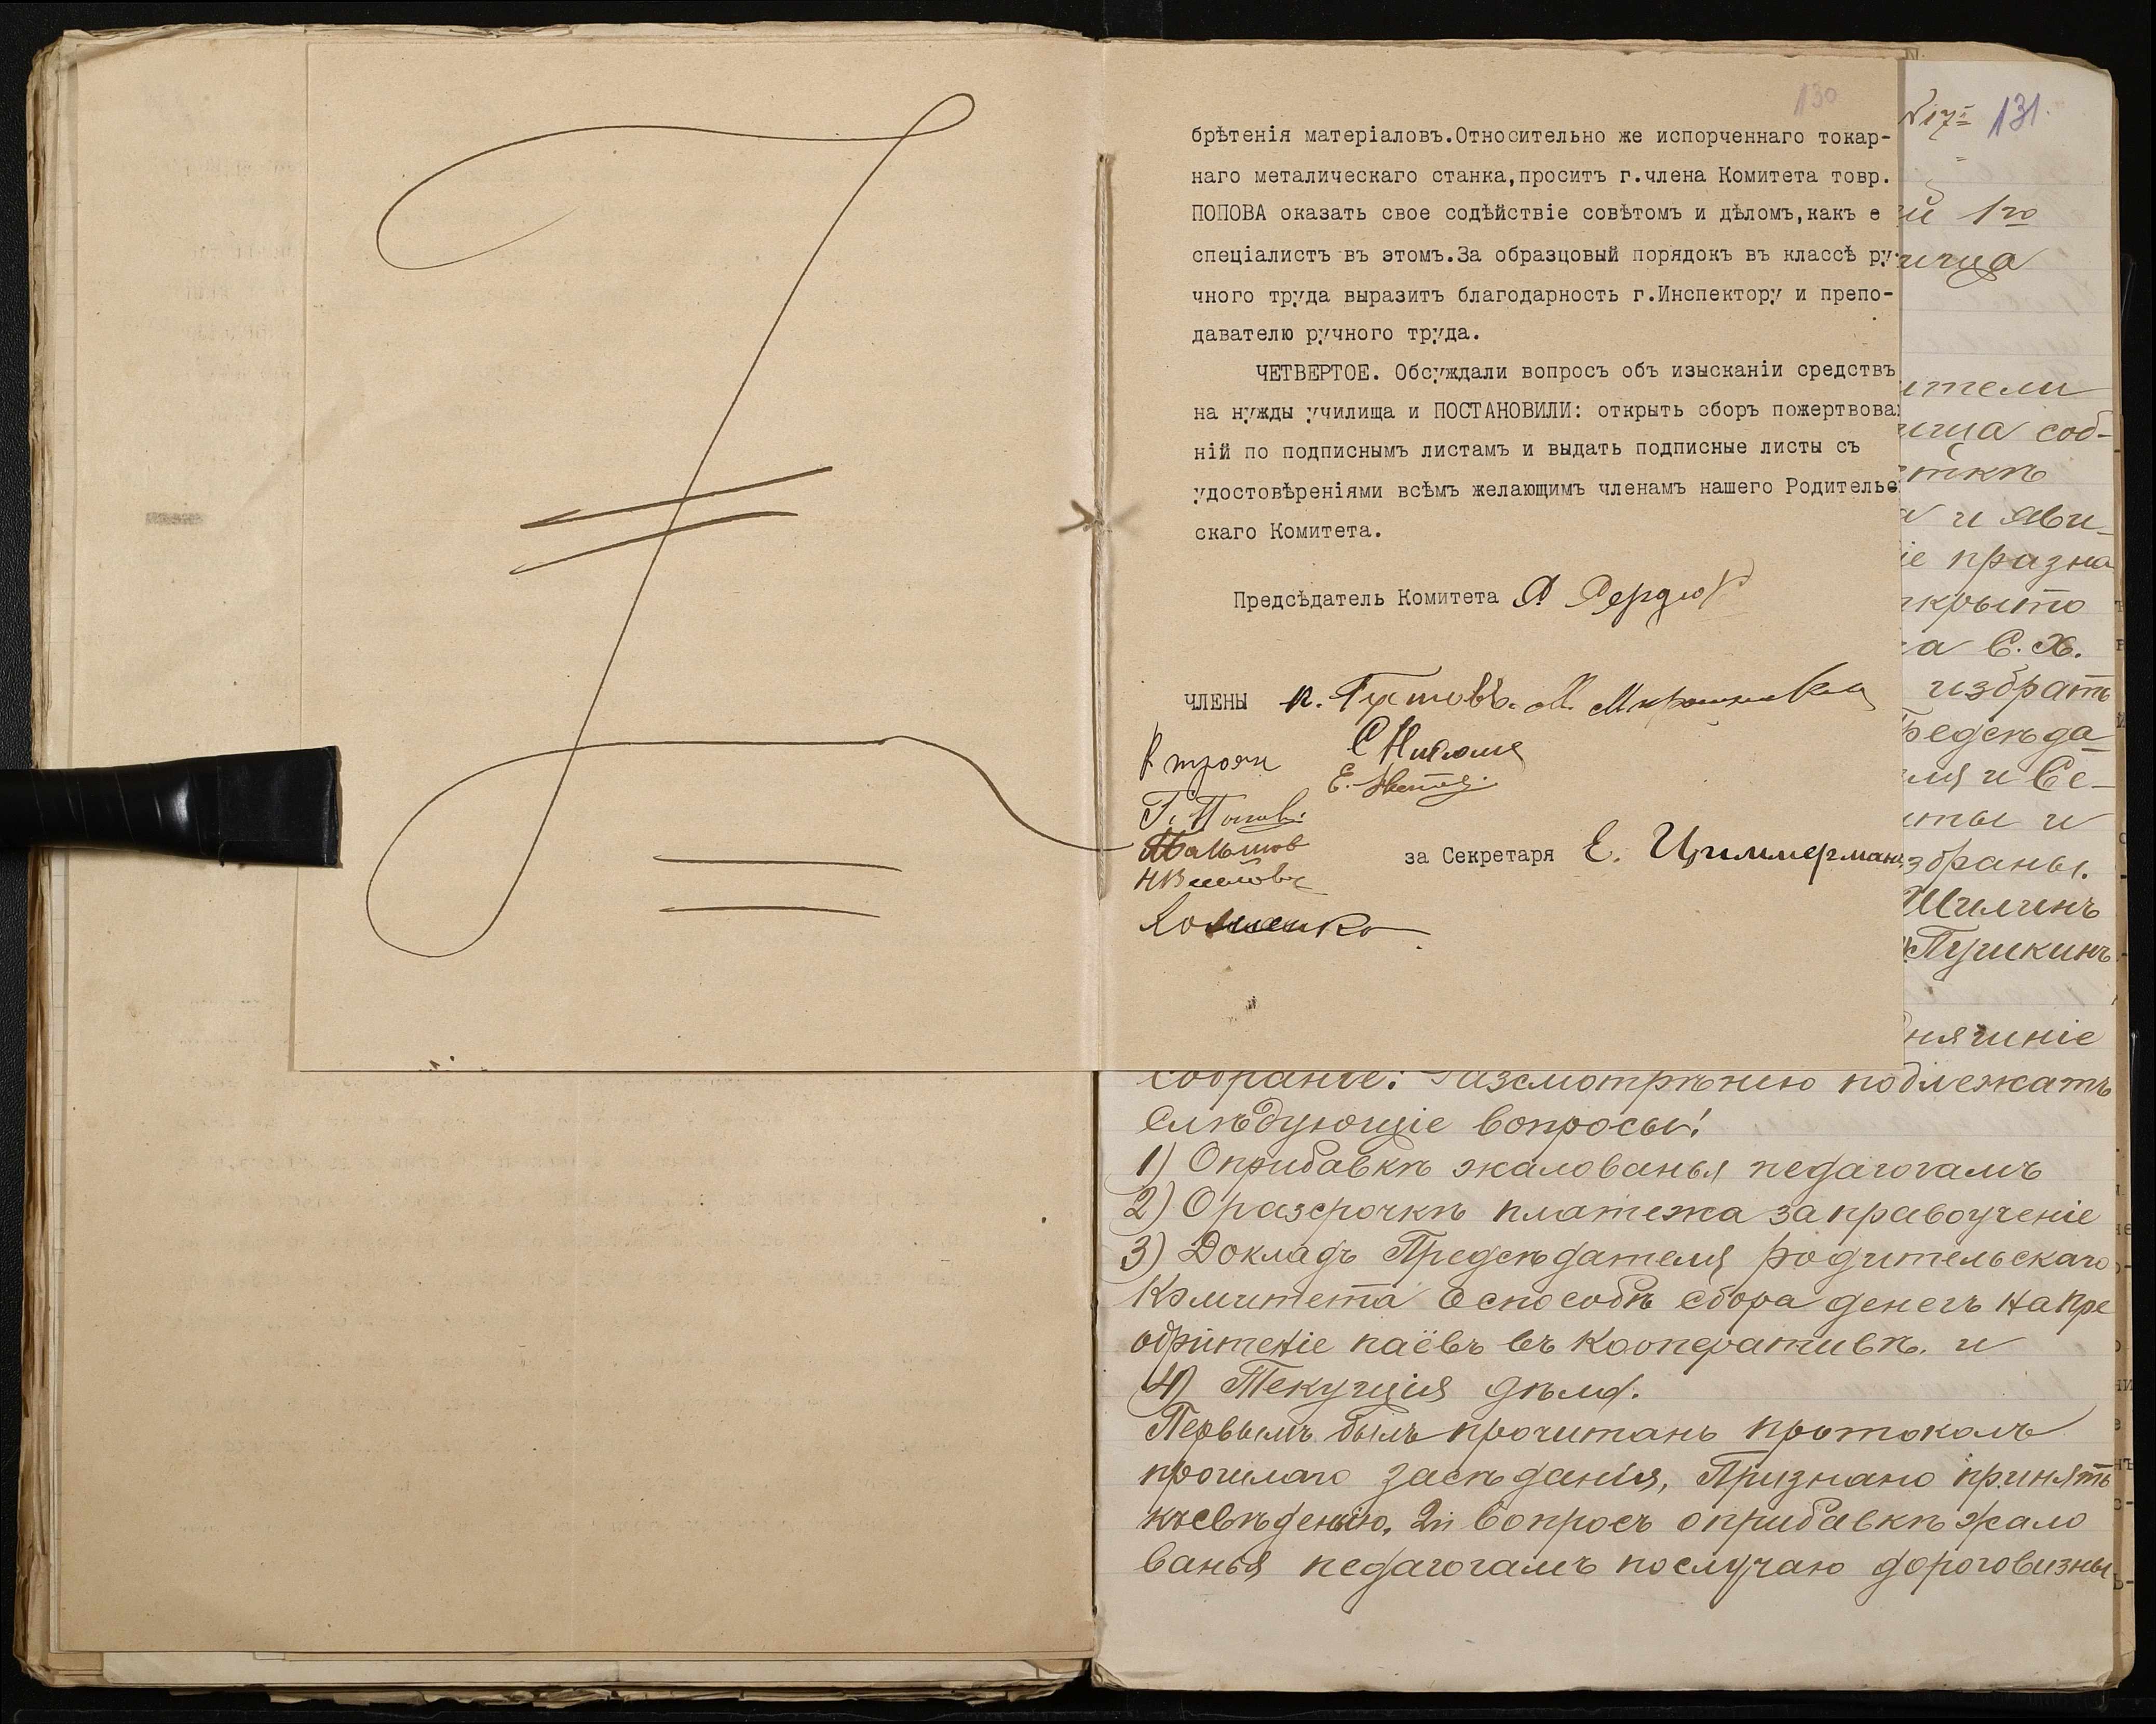 130
брѣтенія матеріаловъ.Относительно же испорченнаго токар-
наго металическаго станка,проситъ г.члена Комитета товр.
ПОПОВА оказать свое содѣйствіе совѣтомъ и дѣломъ,какъ е
спеціалистъ въ этомъ.За образцовый порядокъ въ классѣ ру-
чного труда выразитъ благодарность г.Инспектору и препо-
давателю ручного труда.
ЧЕТВЕРТОЕ. Обсуждали вопросъ объ изысканіи средствъ
на нужды училища и ПОСТАНОВИЛИ: открыть сборъ пожертвова
ній по подписнымъ листамъ и выдать подписные листы съ
удостовѣреніями всѣмъ желающимъ членамъ нашего Родительс
скаго Комитета.
Предсѣдатель Комитета
ЧЛЕНЫ
Г. Поповъ
за Секретаря Е. Циммерманъ
№17 131.
1го
соб-
и яви-
празна
С. Х.
избрать
и Се-
и
Шилинъ
Пушкинъ
собраніе: Разсмотрѣнію подлежатъ
слѣдующіе вопросы:
1) О прибавкѣ жалованья педагогамъ
2) О разсрочкѣ платежа за правоученіе
3) Докладъ Предсѣдателя родительскаго
Комитета о способѣ сбора денегъ на пре
обрітеніе паёвъ въ кооперативѣ. и
4) Текущія дѣла.
Первымъ былъ прочитанъ протоколъ
прошлаго засѣданія, Признано принять
къ свѣденію. 2й вопросъ о прибавкѣ жало
ванья педагогамъ по случаю дороговизны